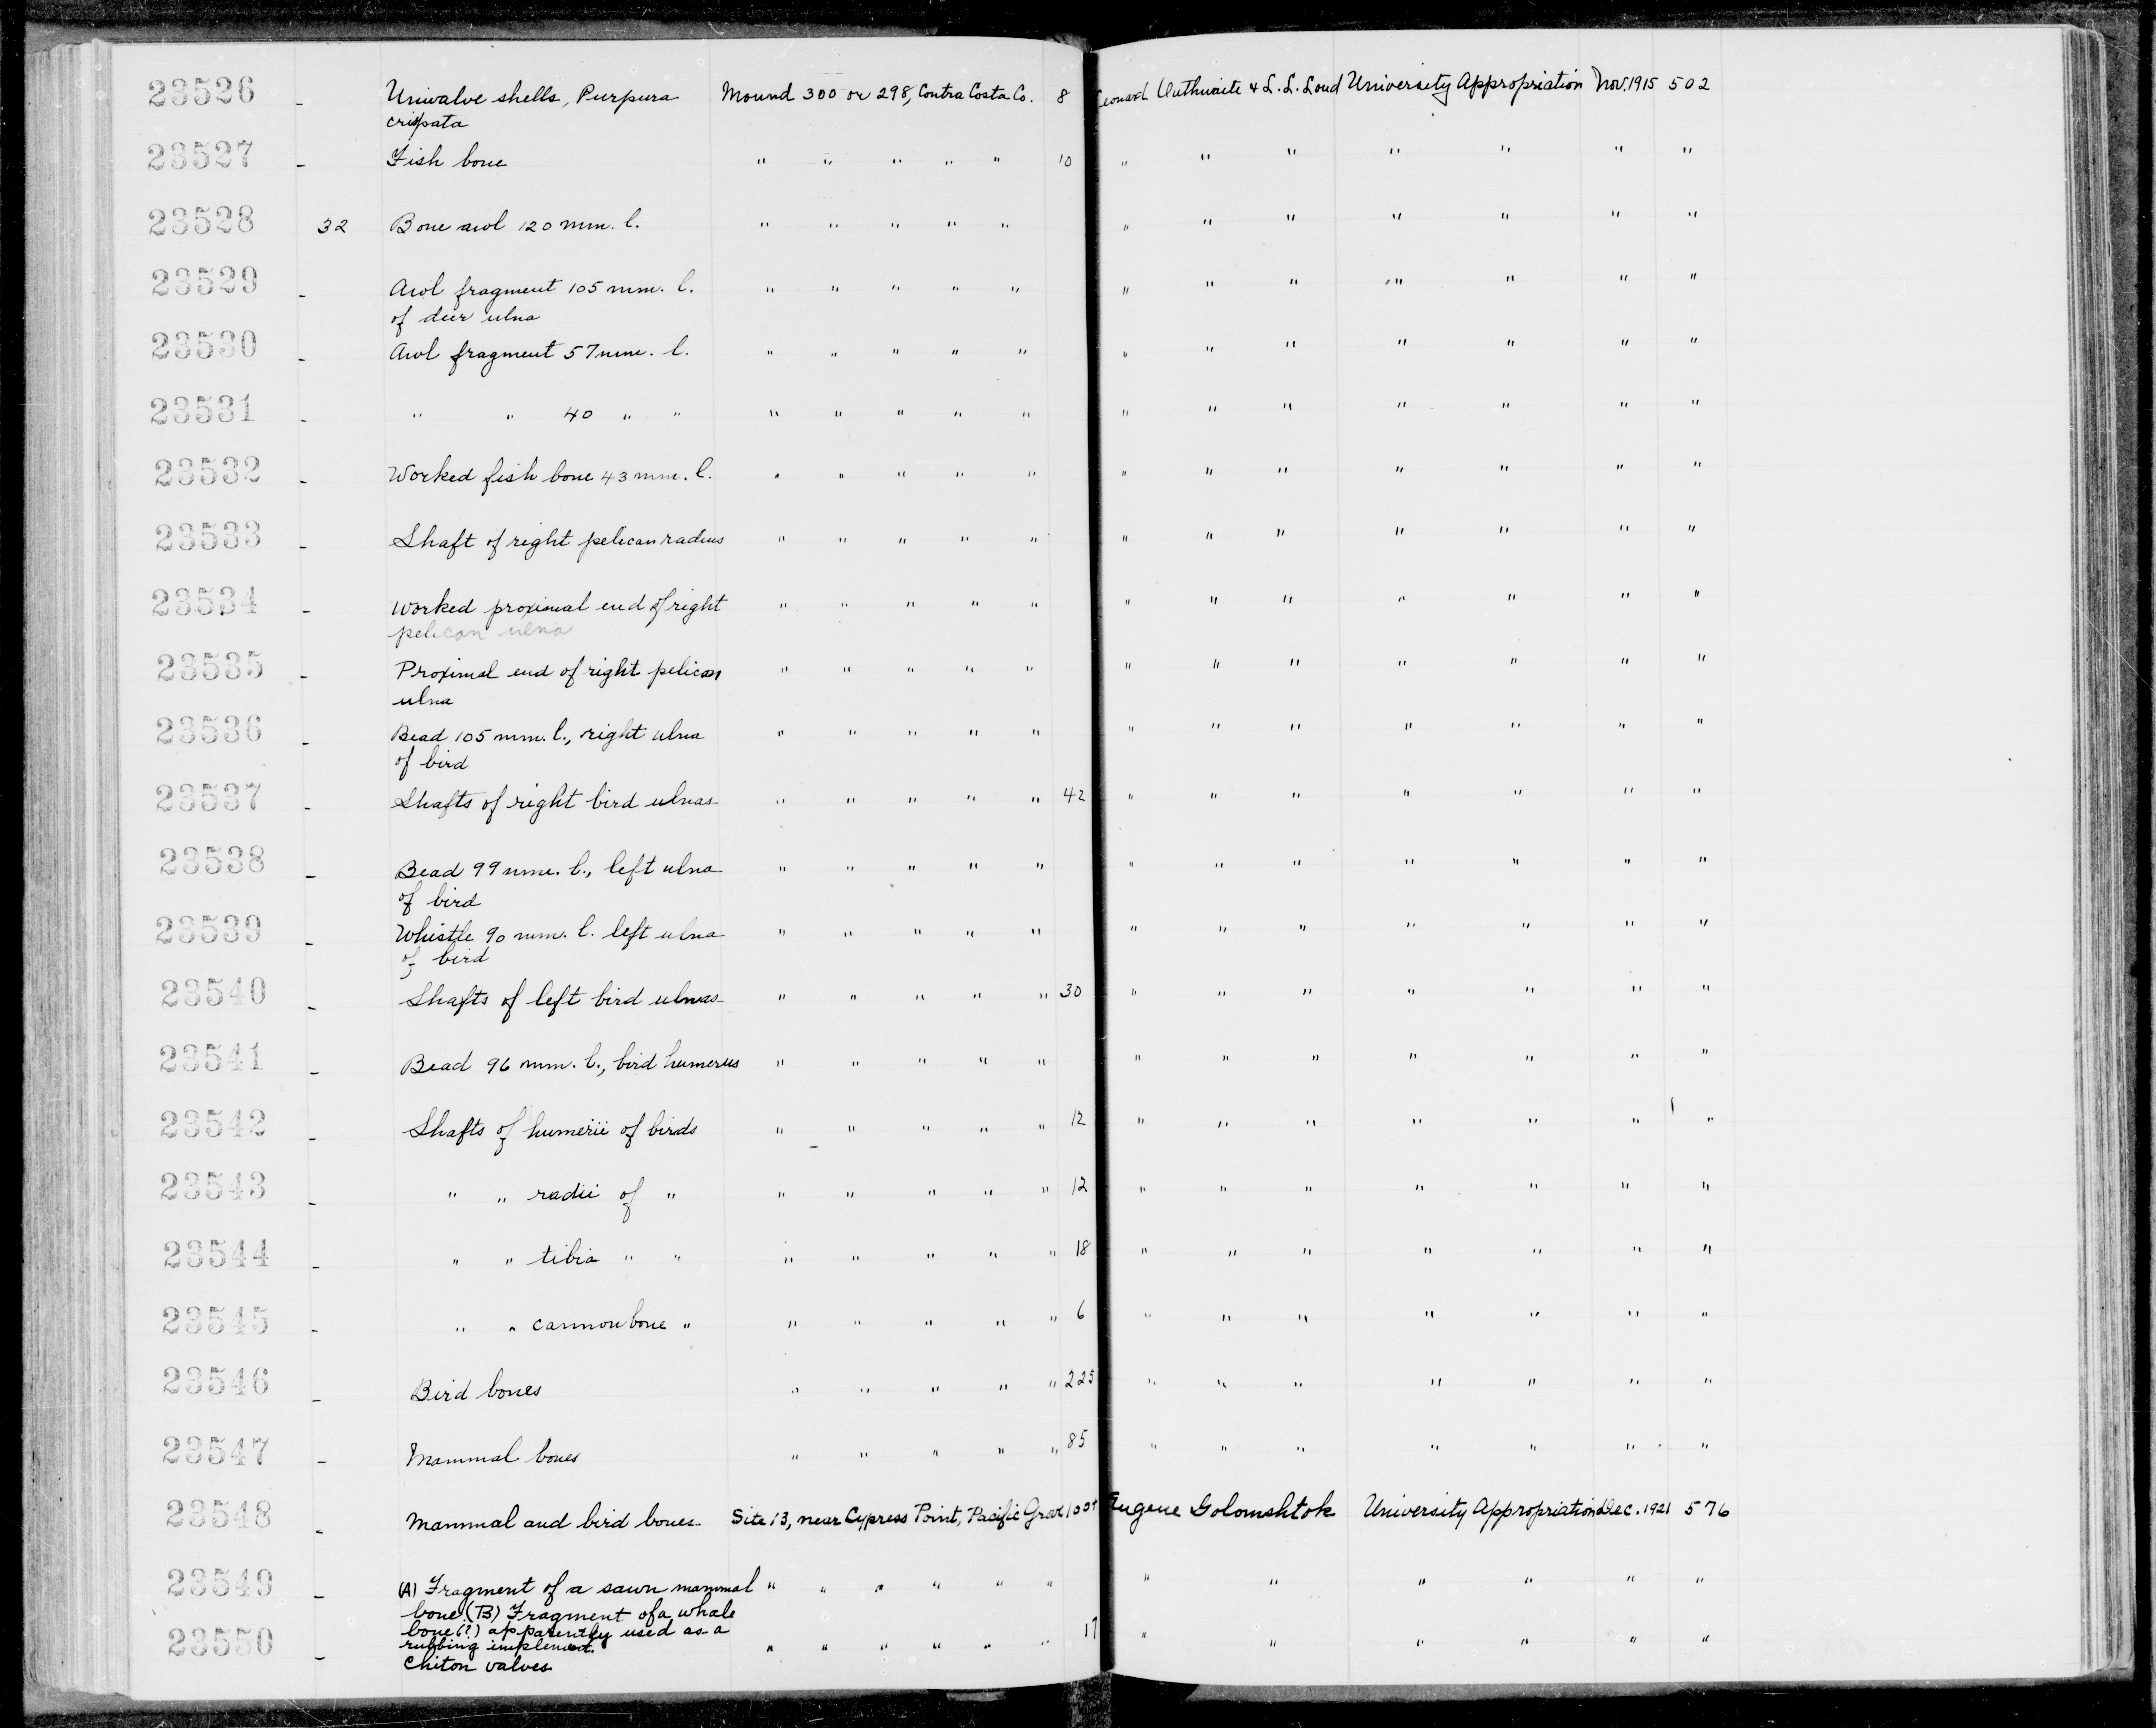 23526 - Univalve shells, Purpura Mound 300 or 298, Contra Costa Co. 8 Leonard Outhwaite & L. L. Loud University Appropriation Nov. 1915 502
crispata
23527 - Fish bone " " " " " 10 " " " " " " "
23528 32 Bone awl 120 mm. l. " " " " " " " " " " " "
23529 - Awl fragment 105 mm. l. " " " " " " " " " " " "
of deer ulna
23530 - Awl fragment 57 mm. l. " " " " " " " " " " " "
23531 - " " 40 " " " " " " " " " " " " " "
23532 - Worked fish bone 43 mm. l. " " " " " " " " " " " "
23533 - Shaft of right pelican radius " " " " " " " " " " " "
23534 - Worked proximal end of right " " " " " " " " " " " "
pelican ulna
23535 - Proximal end of right pelican " " " " " " " " " " " "
ulna
23536 - Bead 105 mm. l., right ulna " " " " " " " " " " " "
of bird
23537 - Shafts of right bird ulnas " " " " " 42 " " " " " " "
23538 - Bead 99 mm. l., left ulna " " " " " " " " " " " "
of bird
23539 - Whistle 90 mm. l. left ulna " " " " " " " " " " " "
of bird
23540 - Shafts of left bird ulnas " " " " " 30 " " " " " " "
23541 - Bead 96 mm. l., bird humerus " " " " " " " " " " " "
23542 - Shafts of humerii of birds " " " " " 12 " " " " " " "
23543 - " " radii of " " " " " " 12 " " " " " " "
23544 - " " tibia " " " " " " " 18 " " " " " " "
23545 - " " cannon bone " " " " " " 6 " " " " " " "
23546 - Bird bones " " " " " 225 " " " " " " "
23547 - Mammal bones " " " " " 85 " " " " " " "
23548 - Mammal and bird bones Site 13, near Cypress Point, Pacific Grove 100+ Eugene Golomshtok University Appropriation Dec. 1921 576
23549 - (A) Fragment of a sawn mammal " " " " " " " " " " " "
bone (B) Fragment of a whale
bone (?) apparently used as a
rubbing implement.
23550 - Chiton valves " " " " " " 17 " " " " " "